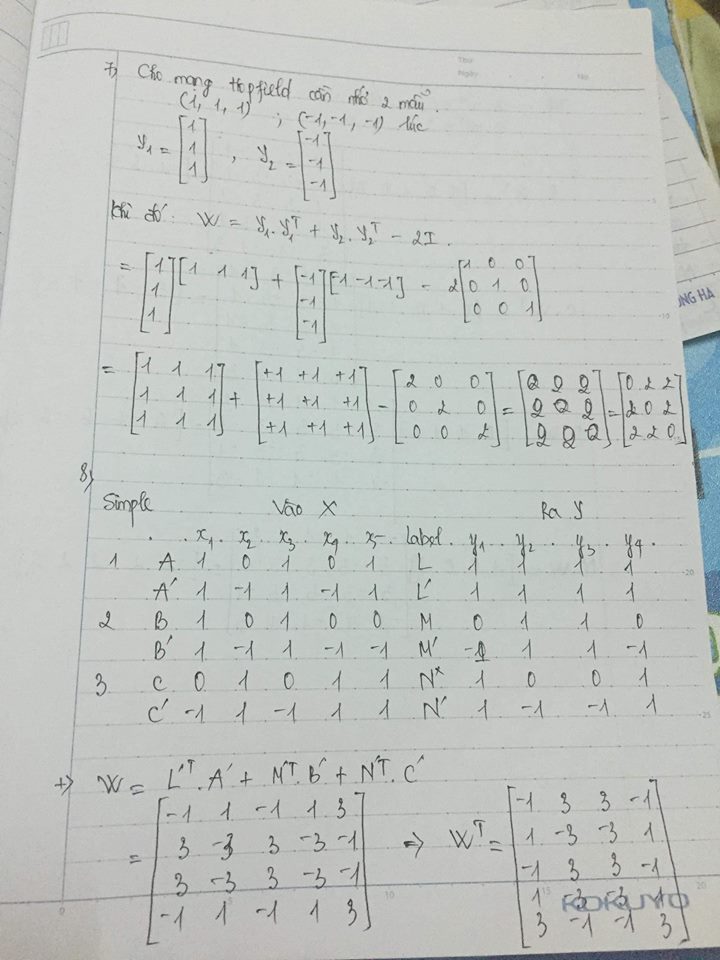 7) Cho mạng Hopfield cần nhớ 2 mẫu.
(1, 1, 1) ; (-1, -1, -1) lúc
y1 = [1 1 1] , y2 = [-1 -1 -1]
Khi đó: W = y1.y1^T + y2.y2^T - 2I.
= [1 1 1] [1 1 1] + [-1 -1 -1] [-1 -1 -1] - 2 [1 0 0 0 1 0 0 0 1]
= [1 1 1 1 1 1 1 1 1] + [+1 +1 +1 +1 +1 +1 +1 +1 +1] - [2 0 0 0 2 0 0 0 2] = [2 2 2 2 2 2 2] = [0 2 2 2 0 2 2 2 0]
8)
Simple Vào X Ra Y
x1 x2 x3 x4 x5 Label y1 y2 y3 y4
1 A 1 0 1 0 1 L 1 1 1 1
A' 1 -1 1 -1 1 L' 1 1 1 1
2 B 1 0 1 0 0 M 0 1 1 0
B' 1 -1 1 -1 -1 M' -1 1 1 -1
3 C 0 1 0 1 1 N* 1 0 0 1
C' -1 1 -1 1 1 N' 1 -1 -1 1
+) W = L'^T.A' + M'^T.B' + N'^T.C'
= [-1 1 -1 1 3 ⇒ W^T = [-1 3 3 -1
3 -3 3 -3 -1 1 -3 -3 1
3 -3 3 -3 -1 -1 3 3 -1
-1 1 -1 1 3] 1 -3 -3 1
3 -1 -1 3]
KOKUYO